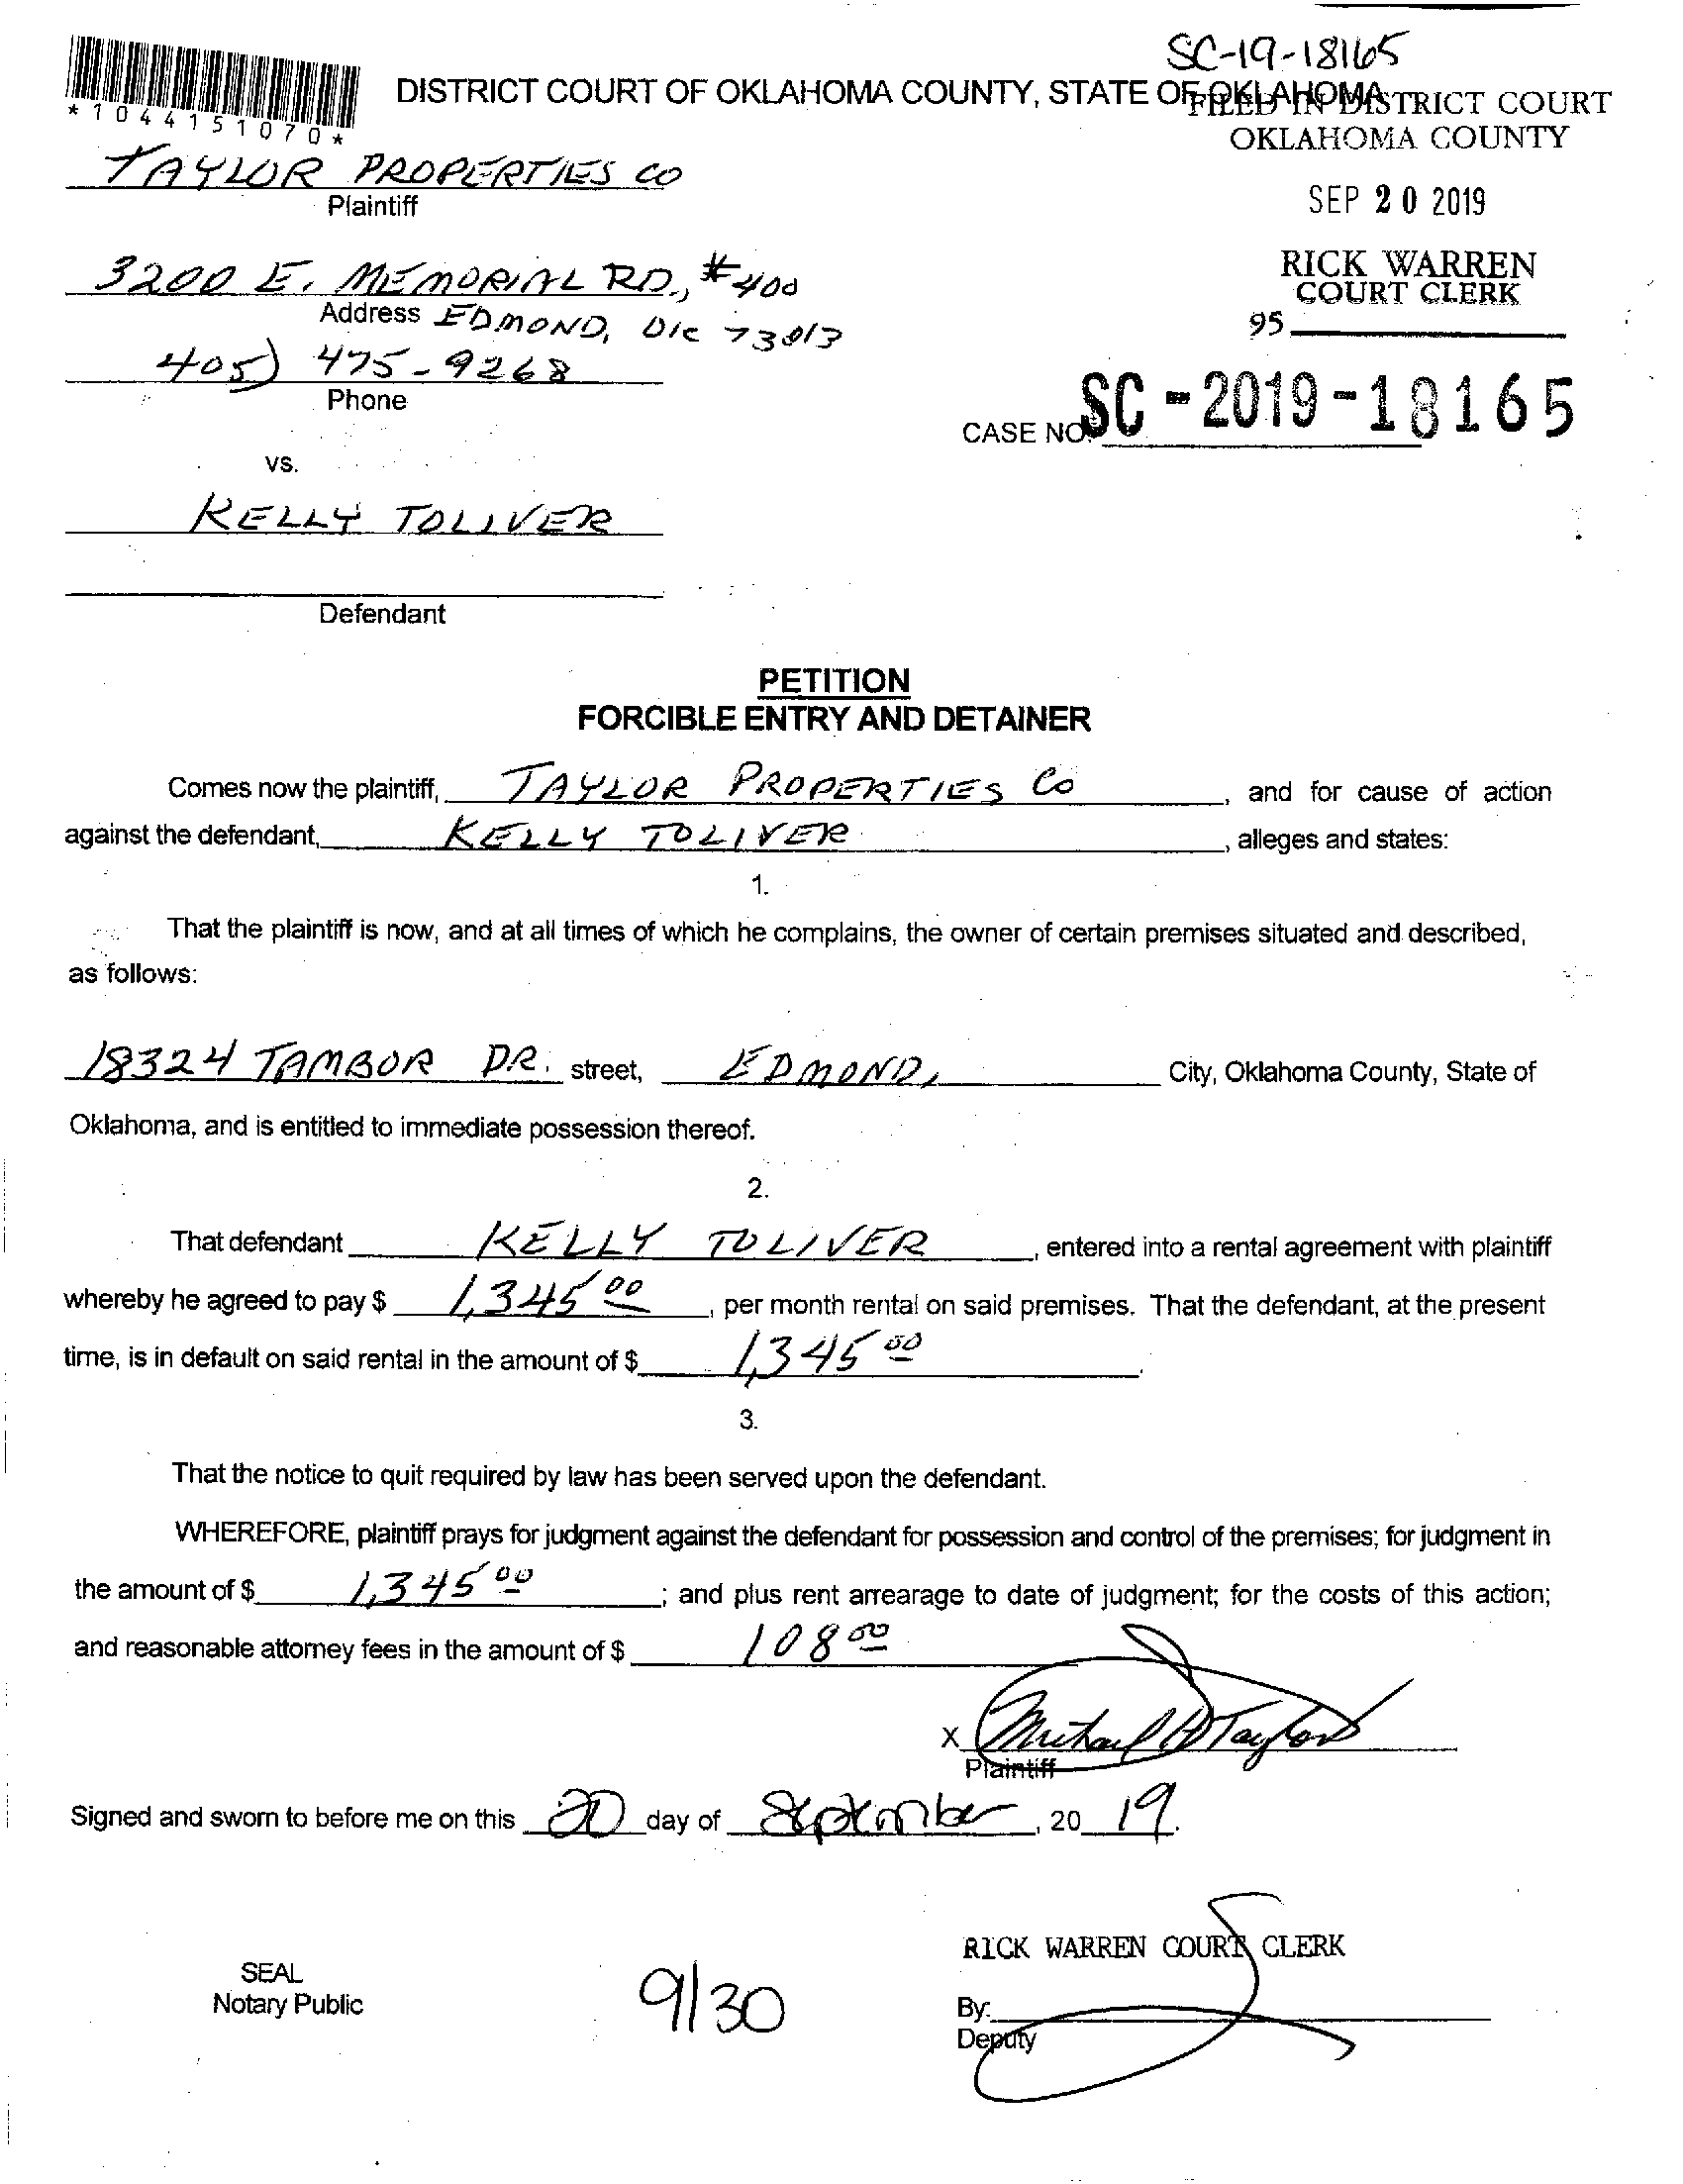 SC-19-18165
*1044151070*
DISTRICT COURT OF OKLAHOMA COUNTY, STATE OF OKLAHOMA
FILED IN DISTRICT COURT
OKLAHOMA COUNTY
TAYLOR PROPERTIES CO
Plaintiff
SEP 20 2019
3200 E. MEMORIAL RD., #400
RICK WARREN
COURT CLERK
Address EDMOND, OK 73013
95
405) 475-9268
Phone
CASE NO. SC-2019-18165
vs.
KELLY TOLIVER
Defendant
PETITION
FORCIBLE ENTRY AND DETAINER
Comes now the plaintiff, TAYLOR PROPERTIES Co, and for cause of action
against the defendant, KELLY TOLIVER, alleges and states:
1.
That the plaintiff is now, and at all times of which he complains, the owner of certain premises situated and described,
as follows:
18324 TAMBOR DR. street, EDMOND, City, Oklahoma County, State of
Oklahoma, and is entitled to immediate possession thereof.
2.
That defendant KELLY TOLIVER, entered into a rental agreement with plaintiff
whereby he agreed to pay $ 1,345 00, per month rental on said premises. That the defendant, at the present
time, is in default on said rental in the amount of $ 1,345 00.
3.
That the notice to quit required by law has been served upon the defendant.
WHEREFORE, plaintiff prays for judgment against the defendant for possession and control of the premises; for judgment in
the amount of $ 1,345 00; and plus rent arrearage to date of judgment; for the costs of this action;
and reasonable attorney fees in the amount of $ 108 00
X Michael D Taylor
Plaintiff
Signed and sworn to before me on this 20 day of September, 20 19.
RICK WARREN COURT CLERK
SEAL
Notary Public
9/30
By:
Deputy